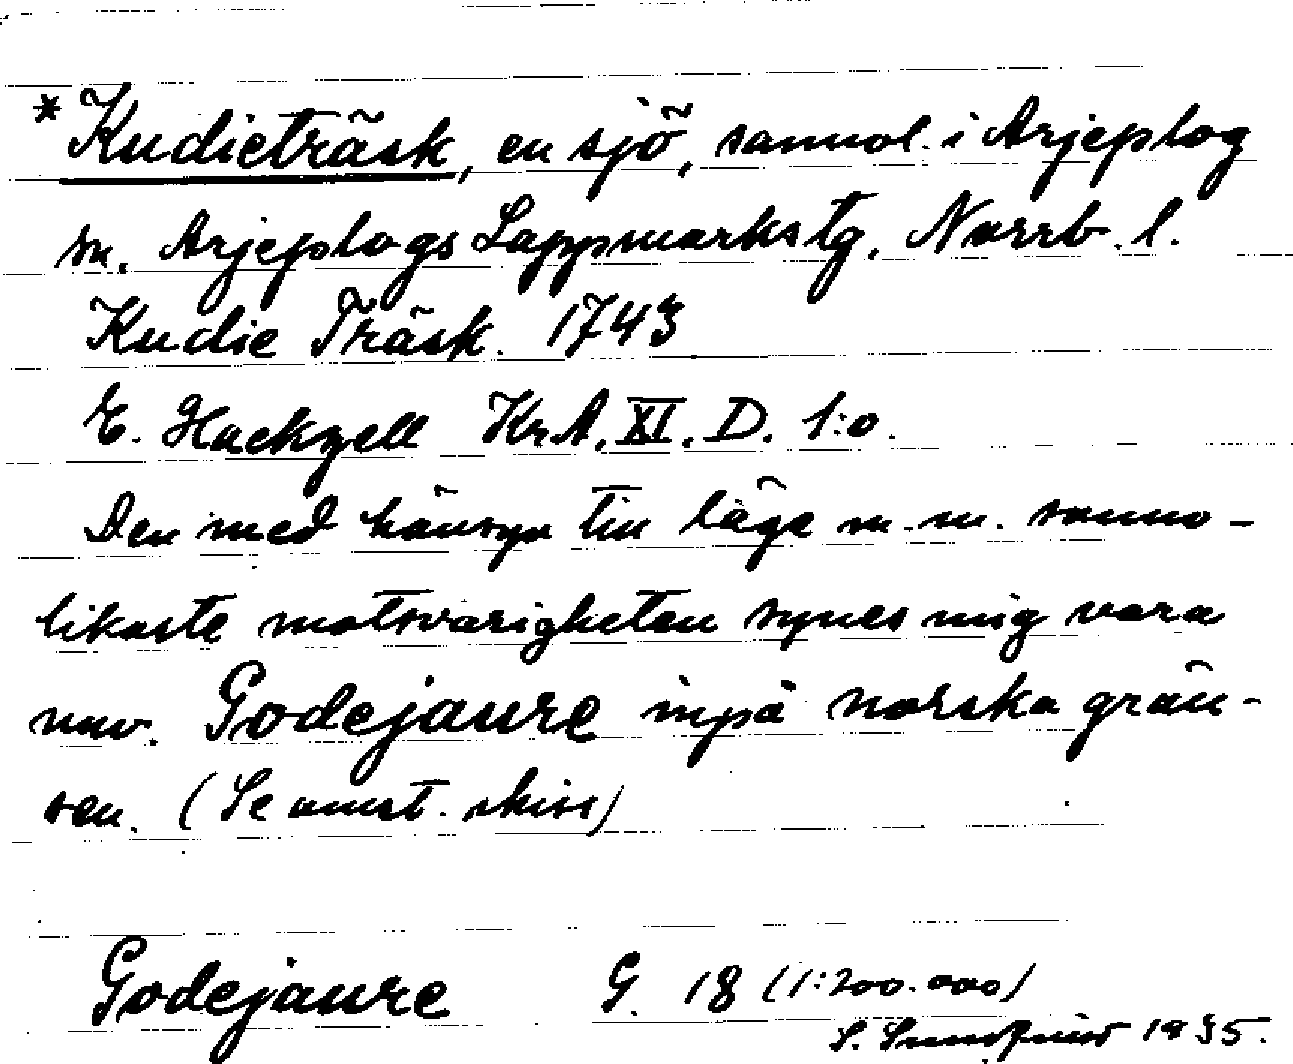 *Kudieträsk, en sjö, sannol. i Arjeplog
sn. Arjeplogs Lappmarks tg. Norrb. l.
Kudie Träsk. 1743
E. Hackzell Kr.A. XI. D. 1:o.
Den med hänsyn till läge m.m. sanno-
likaste motsvarigheten synes mig vara
nuv. Godejaure inpå norska grän-
sen. (Se anst. skiss)
Godejaure G. 18 (1:200.000)
S. 1935.